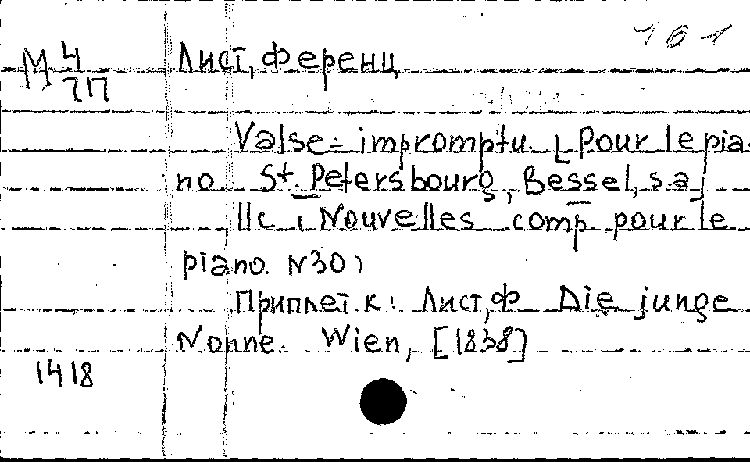 101
М 4 Лист, Ференц
7П
Valse-impromptu. [Pour le pia-
no. St. Petersbourg, Bessel, s.a.
11c (Nouvelles comp. pour le
piano. N30)
Приплет. к: Лист, Ф Die junge
Nonne. Wien, [1838]
1418